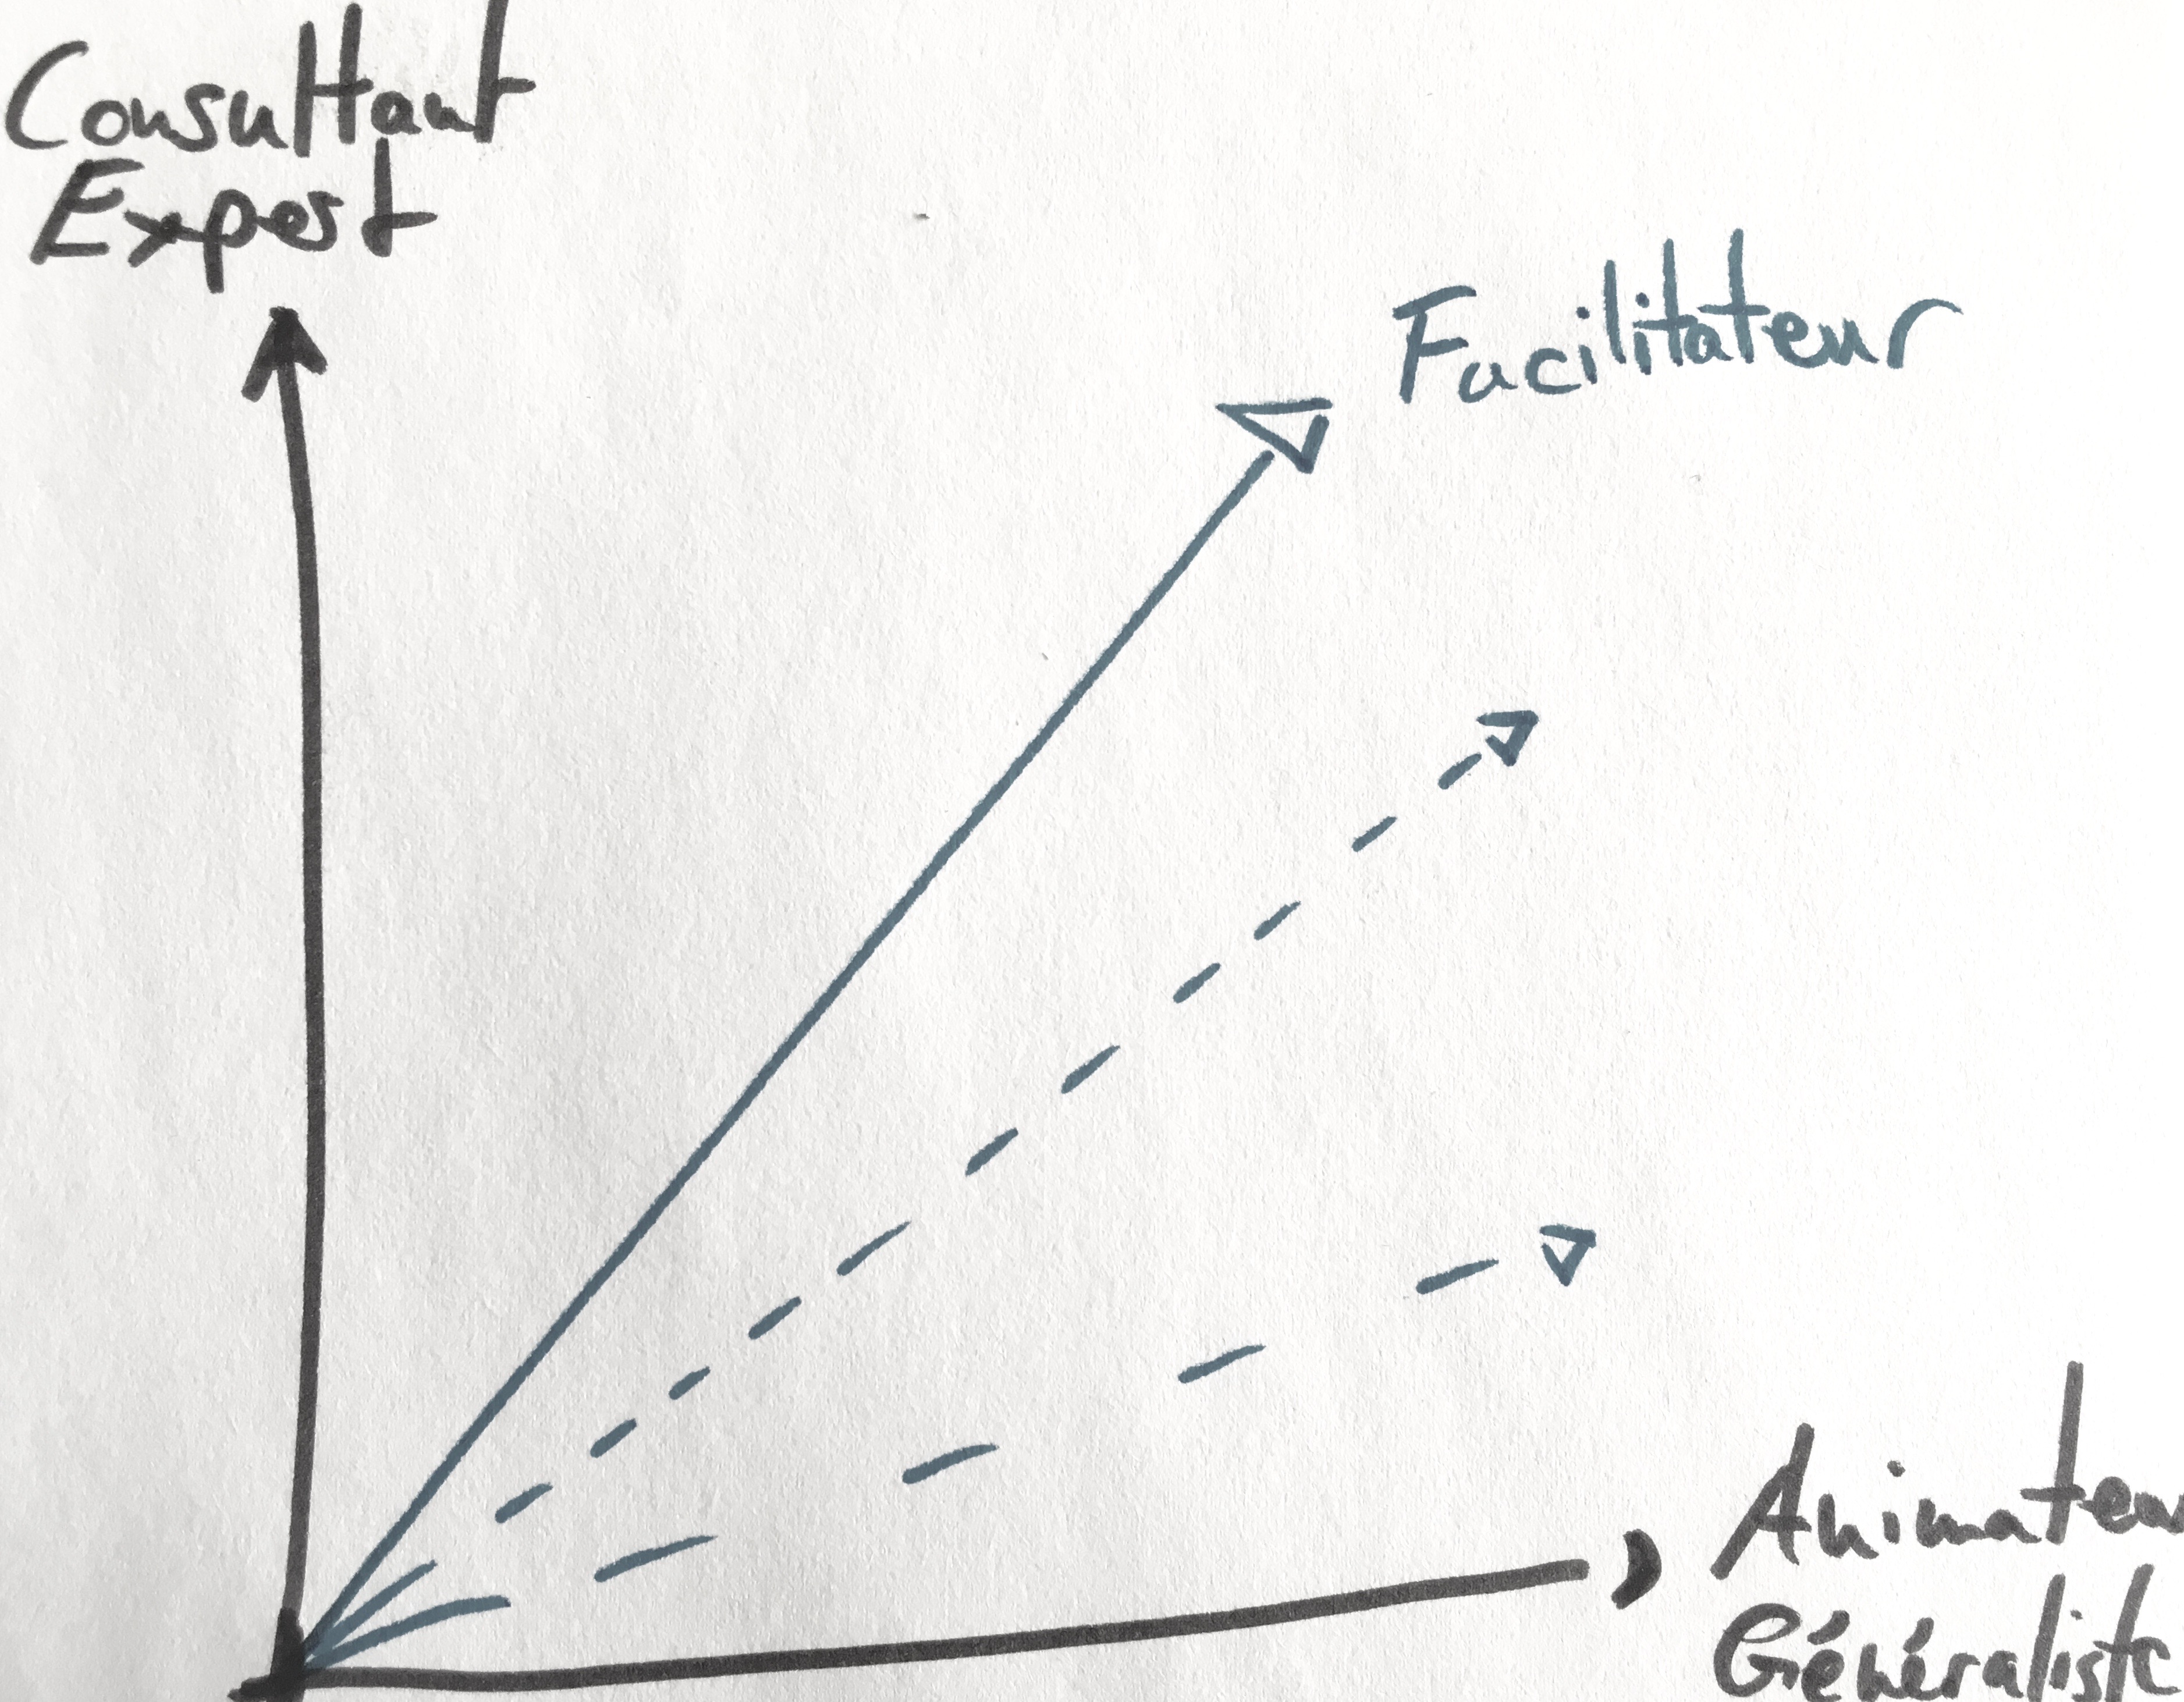 Consultant
Expert
Facilitateur
Animateur
Généraliste